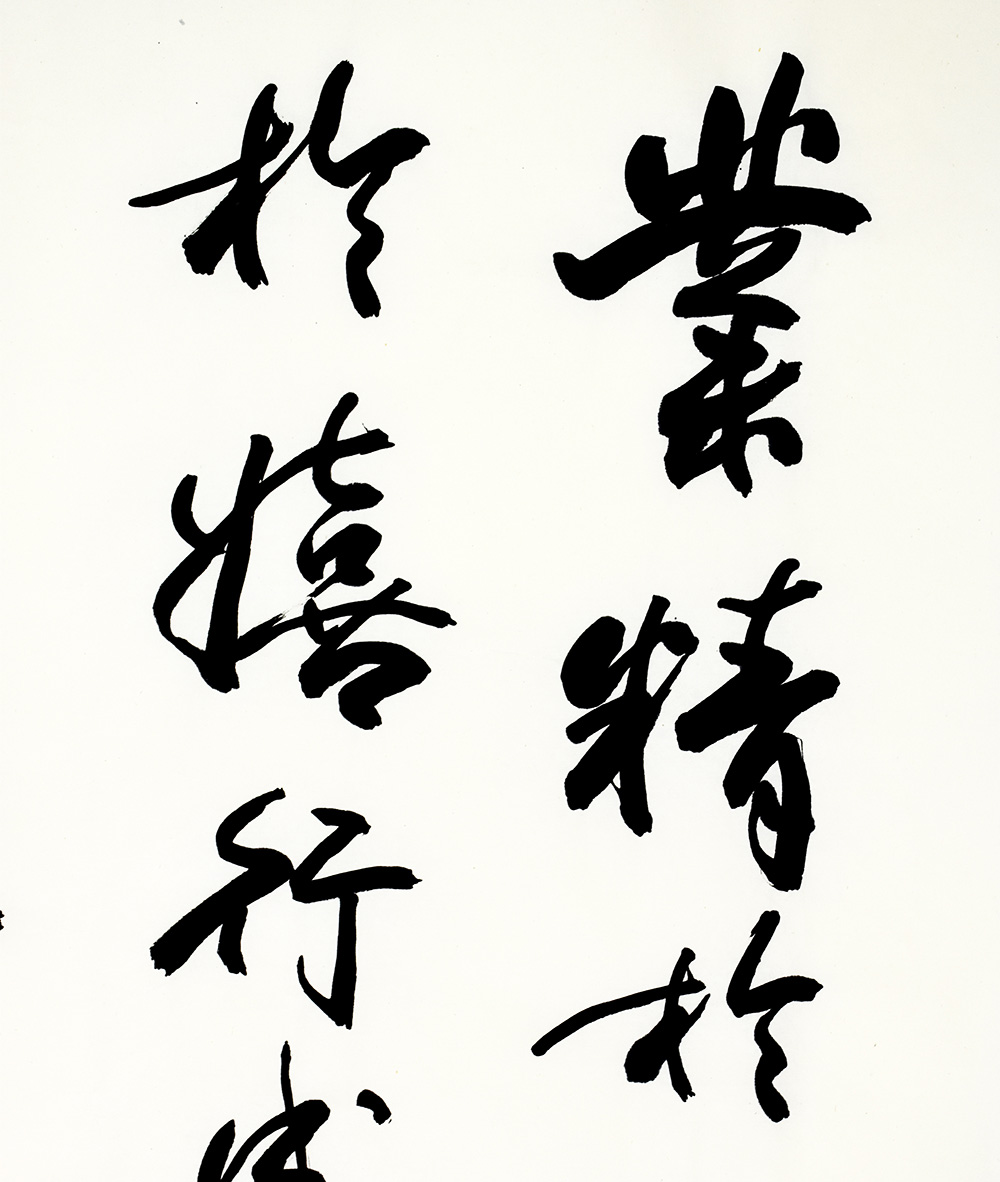 業精於
於嬉行成